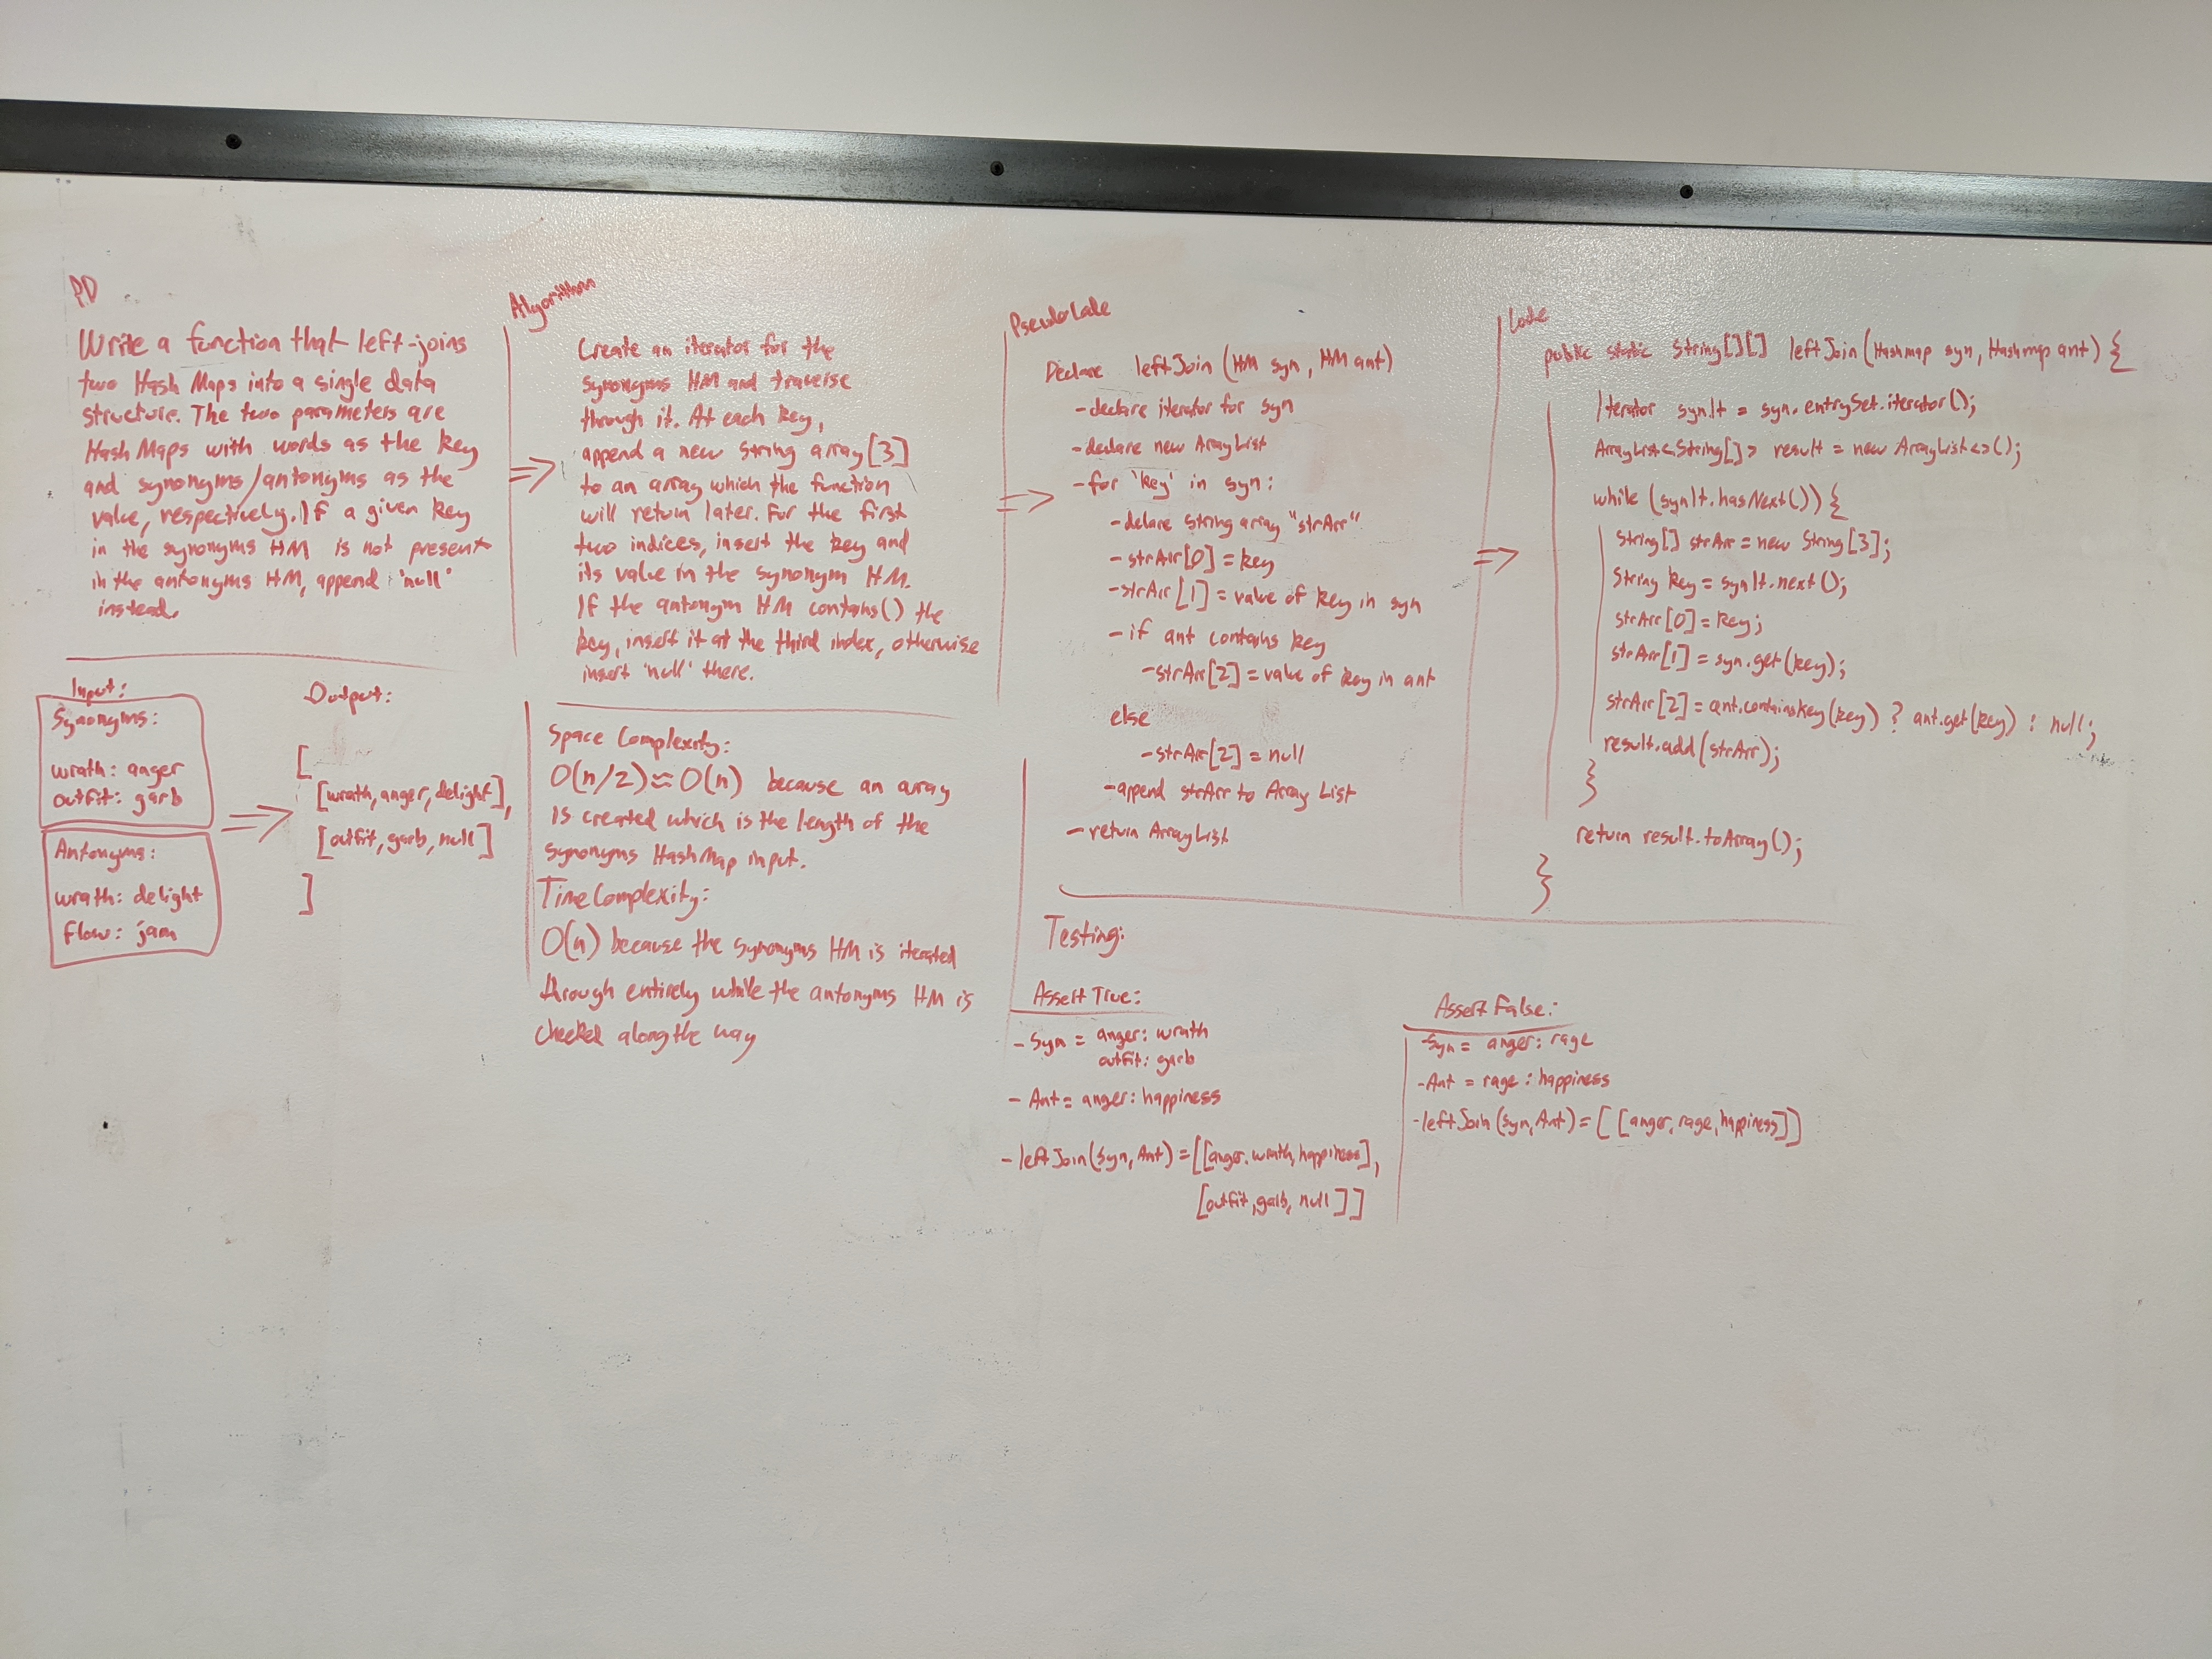 PD
Write a function that left-joins
two Hash Maps into a single data
structure. The two parameters are
Hash Maps with words as the key
and synonyms/antonyms as the
value, respectively. If a given key
in the synonyms HM is not present
in the antonyms HM, append 'null'
instead.
Input:
Synonyms:
wrath: anger
outfit: garb
Antonyms:
wrath: delight
flow: jam
Output:
[
[wrath, anger, delight],
[outfit, garb, null]
]
Algorithm
Create an iterator for the
synonyms HM and traverse
through it. At each key,
append a new String array[3]
to an array which the function
will return later. For the first
two indices, insert the key and
its value in the synonym HM.
If the antonym HM contains() the
key, insert it at the third index, otherwise
insert 'null' there.
Space Complexity:
O(n/2) ≈ O(n) because an array
is created which is the length of the
synonyms HashMap input.
Time Complexity:
O(n) because the synonyms HM is iterated
through entirely while the antonyms HM is
checked along the way
Pseudocode
Declare leftJoin (HM syn, HM ant)
- declare iterator for syn
- declare new ArrayList
- for 'key' in syn:
- declare String array "strArr"
- strArr[0] = key
- strArr[1] = value of key in syn
- if ant contains key
- strArr[2] = value of key in ant
else
- strArr[2] = null
- append strArr to Array List
- return ArrayList
Code
public static String[][] leftJoin(Hashmap syn, Hashmap ant) {
Iterator synIt = syn.entrySet.iterator();
ArrayList<String[]> result = new ArrayList<>();
while (synIt.hasNext()) {
String[] strArr = new String[3];
String key = synIt.next();
strArr[0] = key;
strArr[1] = syn.get(key);
strArr[2] = ant.containsKey(key) ? ant.get(key) : null;
result.add(strArr);
}
return result.toArray();
}
Testing:
Assert True:
- Syn = anger: wrath
outfit: garb
- Ant = anger: happiness
- leftJoin(Syn, Ant) = [[anger, wrath, happiness],
[outfit, garb, null]]
Assert False:
- Syn = anger: rage
- Ant = rage: happiness
- leftJoin(Syn, Ant) = [[anger, rage, happiness]]